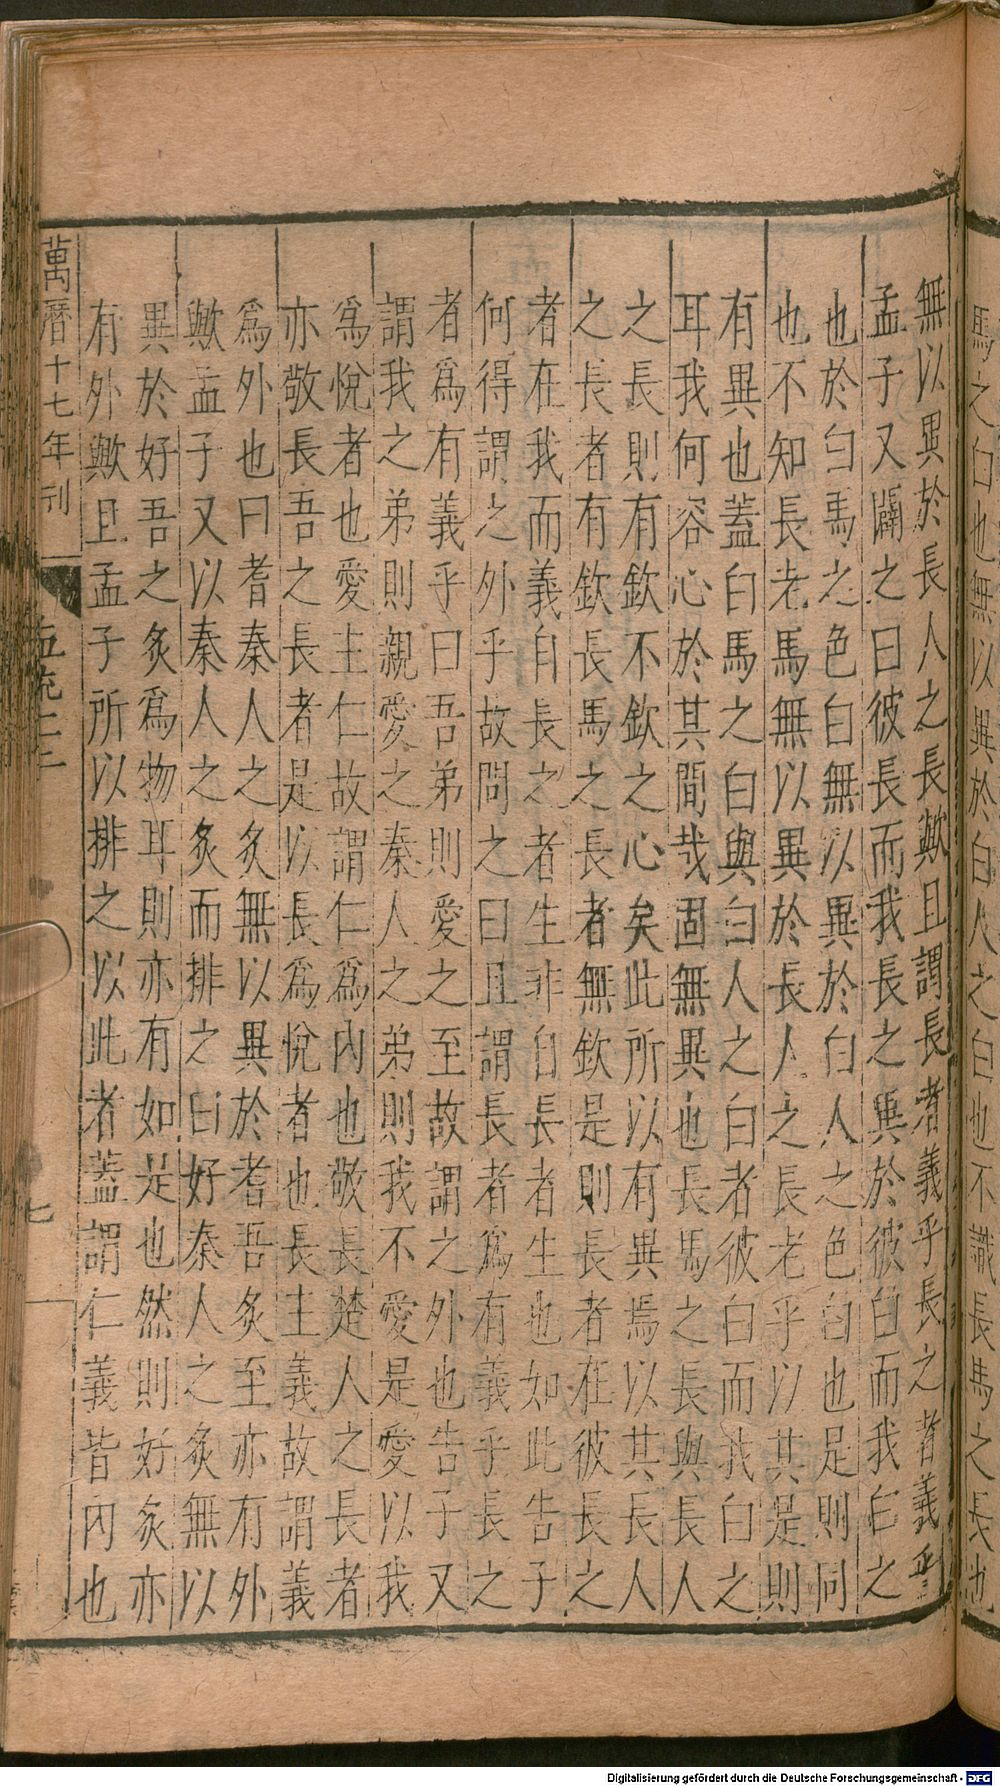 馬之白也無以異於白人之白也不識長馬之長也
無以異於長人之長歟且謂長者義乎長之者義乎
孟子又闢之曰彼長而我長之異於彼白而我白之
也於白馬之色白無以異於白人之色白也是則同
也不知長老馬無以異於長人之長老乎以其是則
有異也蓋白馬之白與白人之白者彼白而我白之
耳我何容心於其間哉固無異也長馬之長與長人
之長則有欽不欽之心矣此所以有異焉以其長人
之長者有欽長馬之長者無欽是則長者在彼長之
者在我而義自長之者生非自長者生也如此告子
何得謂之外乎故問之曰且謂長者為有義乎長之
者為有義乎曰吾弟則愛之至故謂之外也告子又
謂我之弟則親愛之秦人之弟則我不愛是愛以我
為悅者也愛主仁故謂仁為內也敬長楚人之長者
亦敬長吾之長者是以長為悅者也長主義故謂義
為外也曰耆秦人之炙無以異於耆吾炙至亦有外
歟孟子又以秦人之炙而排之曰好秦人之炙無以
異於好吾之炙為物耳則亦有如是也然則好炙亦
有外歟且孟子所以排之以此者蓋謂仁義皆內也
萬曆十七年刊
孟疏
七
Digitalisierung gefördert durch die Deutsche Forschungsgemeinschaft - DFG